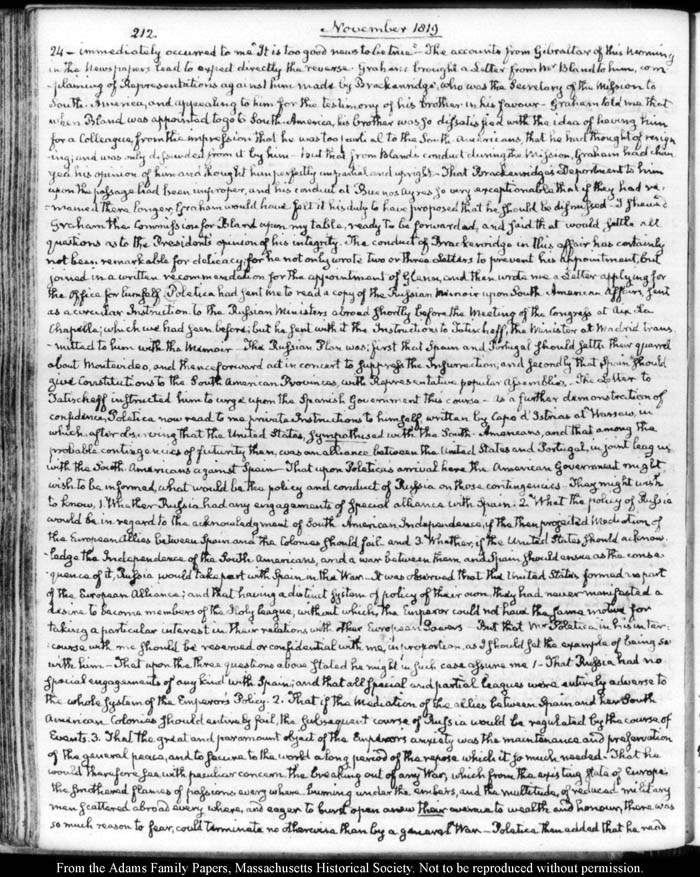 212.
November 1819
24 – immediately occurred to me "It is too good news to be true" – The accounts from Gibraltar of this Morning
in the Newspapers lead to expect directly the reverse. Graham brought a Letter from Mr Bland to him, com-
plaining of Representations against him made by Brackenridge, who was the Secretary of the Mission to
South-America, and appealing to him for the testimony of his brother in his favour – Graham told me that
when Bland was appointed to go to South-America, his brother was so dissatisfied with the idea of having him
for a Colleague, from the impression that he was too partial to the South Americans, that he had thought of resign-
ing; and was only dissuaded from it by him – but that from Bland's conduct during the Mission, Graham had chan-
ged his opinion of him and thought him perfectly impartial and upright – That Brackenridge's Deportment to him
upon the passage had been improper, and his conduct at Buenos Ayres so very exceptionable that if they had re-
mained there longer, Graham would have felt it his duty to have proposed that he should be dismissed – I shewed
Graham the Commission for Bland upon my table, ready to be forwarded, and said that would settle all
questions as to the President's opinion of his integrity. The conduct of Brackenridge in this affair has certainly
not been remarkable for delicacy, for he not only wrote two or three Letters to prevent his appointment, but
joined in a written recommendation for the appointment of Glenn, and then wrote me a Letter applying for
the Office for himself. Poletica had sent me to read a copy of the Russian Memoir upon South-American Affairs, sent
as a circular Instruction to the Russian Ministers abroad shortly before the Meeting of the Congress at Aix-La
Chapelle; which we had seen before; but he sent with it the Instructions to Tatischeff, the Minister at Madrid trans-
mitted to him with the Memoir – The Russian Plan was; first that Spain and Portugal should settle their quarrel
about Montevideo, and thenceforward act in concert to suppress the Insurrection; and secondly that Spain should
give Constitutions to the South American Provinces, with Representative popular Assemblies. – The Letter to
Tatischeff instructed him to urge upon the Spanish Government this course – As a further demonstration of
confidence, Poletica now read to me private Instructions to himself written by Capo d'Istrias at Warsaw, in
which after observing that the United States, sympathised with the South-Americans, and that among the
probable contingencies of futurity then, was an alliance between the United States and Portugal, in joint league
with the South Americans against Spain – That upon Poletica's arrival here the American Government might
wish to be informed, what would be the policy and conduct of Russia on those contingencies. They might wish
to know, 1. Whether Russia had any engagements of special alliance with Spain. 2 What the policy of Russia
would be in regard to the acknowledgment of South American Independence, if the then projected Mediation of
the European Allies between Spain and the Colonies should fail. and 3. Whether, if the United States should acknow-
ledge the Independence of the South Americans, and a war between them and Spain should ensue as the conse-
quence of it, Russia would take part with Spain in the War – It was observed that the United States formed no part
of the European Alliance; and that having a distinct system of policy of their own they had never manifested a
desire to become members of the Holy league, without which, the Emperor could not have the same motive for
taking a particular interest in their relations with other European Powers – But that Mr Poletica in his inter-
course with me should be reserved or confidential with me, in proportion, as I should set the example of being so
with him – That upon the three questions above stated he might in such case assure me 1 – That Russia had no
special engagements of any kind with Spain; and that all special and partial leagues were entirely adverse to
the whole System of the Emperor's Policy. 2. That if the Mediation of the allies between Spain and her South
American Colonies should entirely fail, the subsequent course of Russia would be regulated by the course of
Events. 3. That the great and paramount object of the Emperor's anxiety was the maintenance and preservation
of the general peace, and to secure to the world a long period of the repose which it so much needed. That he
would therefore see with peculiar concern the breaking out of any War, which from the existing state of Europe
the smothered flames of passions every where burning under the embers, and the multitude, of reduced military
men scattered abroad every where, and eager to burst open anew their avenue to wealth and honour, there was
so much reason to fear, could terminate no otherwise than by a general War – Poletica then added that he need
From the Adams Family Papers, Massachusetts Historical Society. Not to be reproduced without permission.